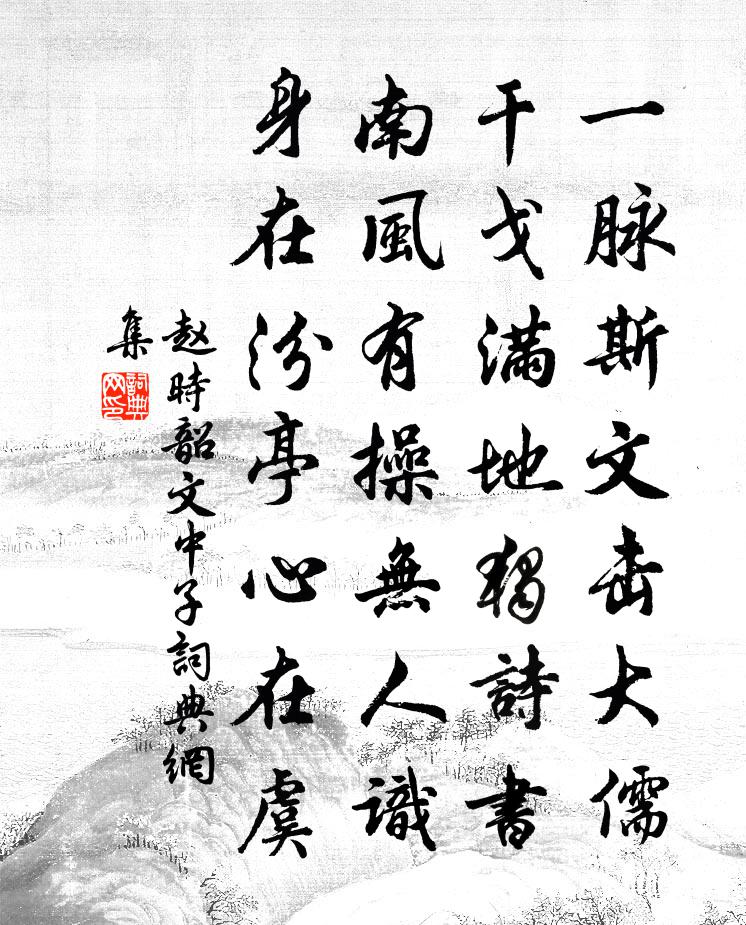 一脉斯文出大儒
干戈滿地獨詩書
南風有操無人識
身在汾亭心在虞
赵時韶文中子詞典網
集
詞典網印